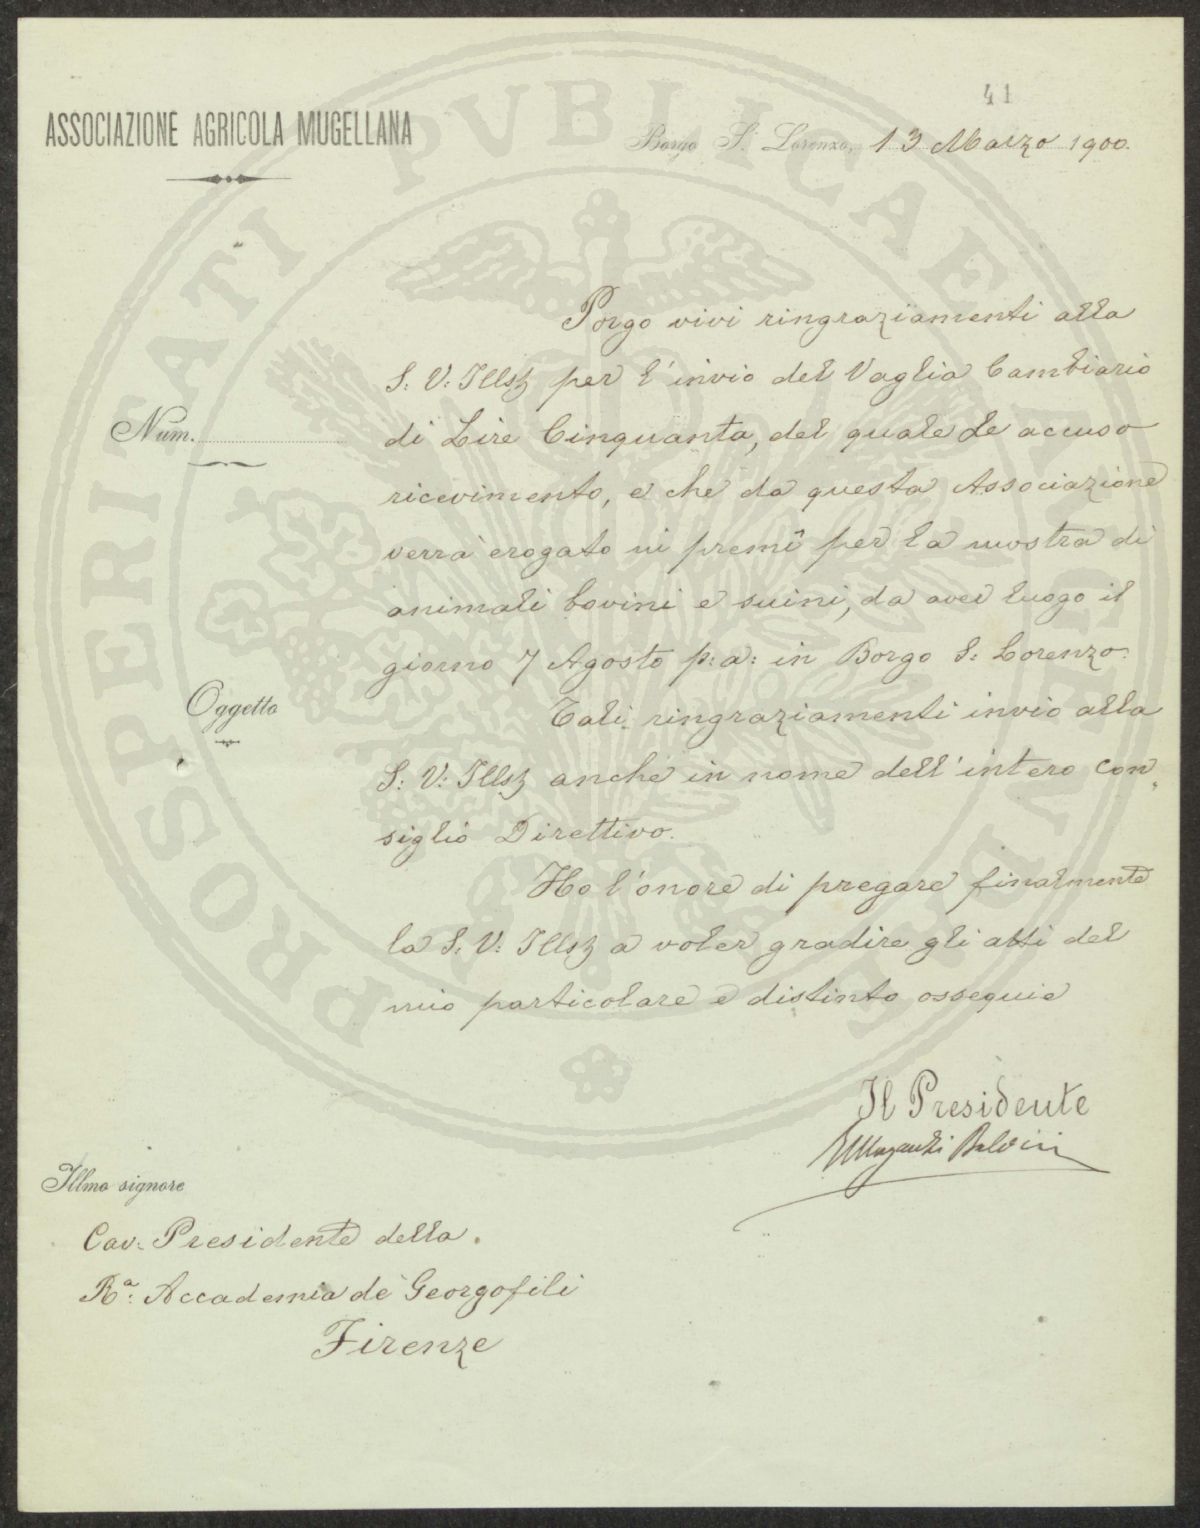 41
ASSOCIAZIONE AGRICOLA MUGELLANA
Borgo S. Lorenzo, 13 Marzo 1900.
Porgo vivi ringraziamenti alla
S: V: Illma per l'invio del Vaglia Cambiario
di Lire Cinquanta, del quale Le accuso
ricevimento, e che da questa Associazione
verrà erogato in premî per la mostra di
animali bovini e suini, da aver luogo il
giorno 7 Agosto p: a: in Borgo S: Lorenzo.
Num.
Oggetto
Tali ringraziamenti invio alla
S: V: Illma anche in nome dell'intero Con
siglio Direttivo.
Ho l'onore di pregare finalmente
la S: V: Illma a voler gradire gli atti del
mio particolare e distinto ossequio
Il Presidente
Baldini
Illmo signore
Cav: Presidente della
Ra: Accademia de' Georgofili
Firenze
PROSPERITATI PVBLICAE AVGENDAE